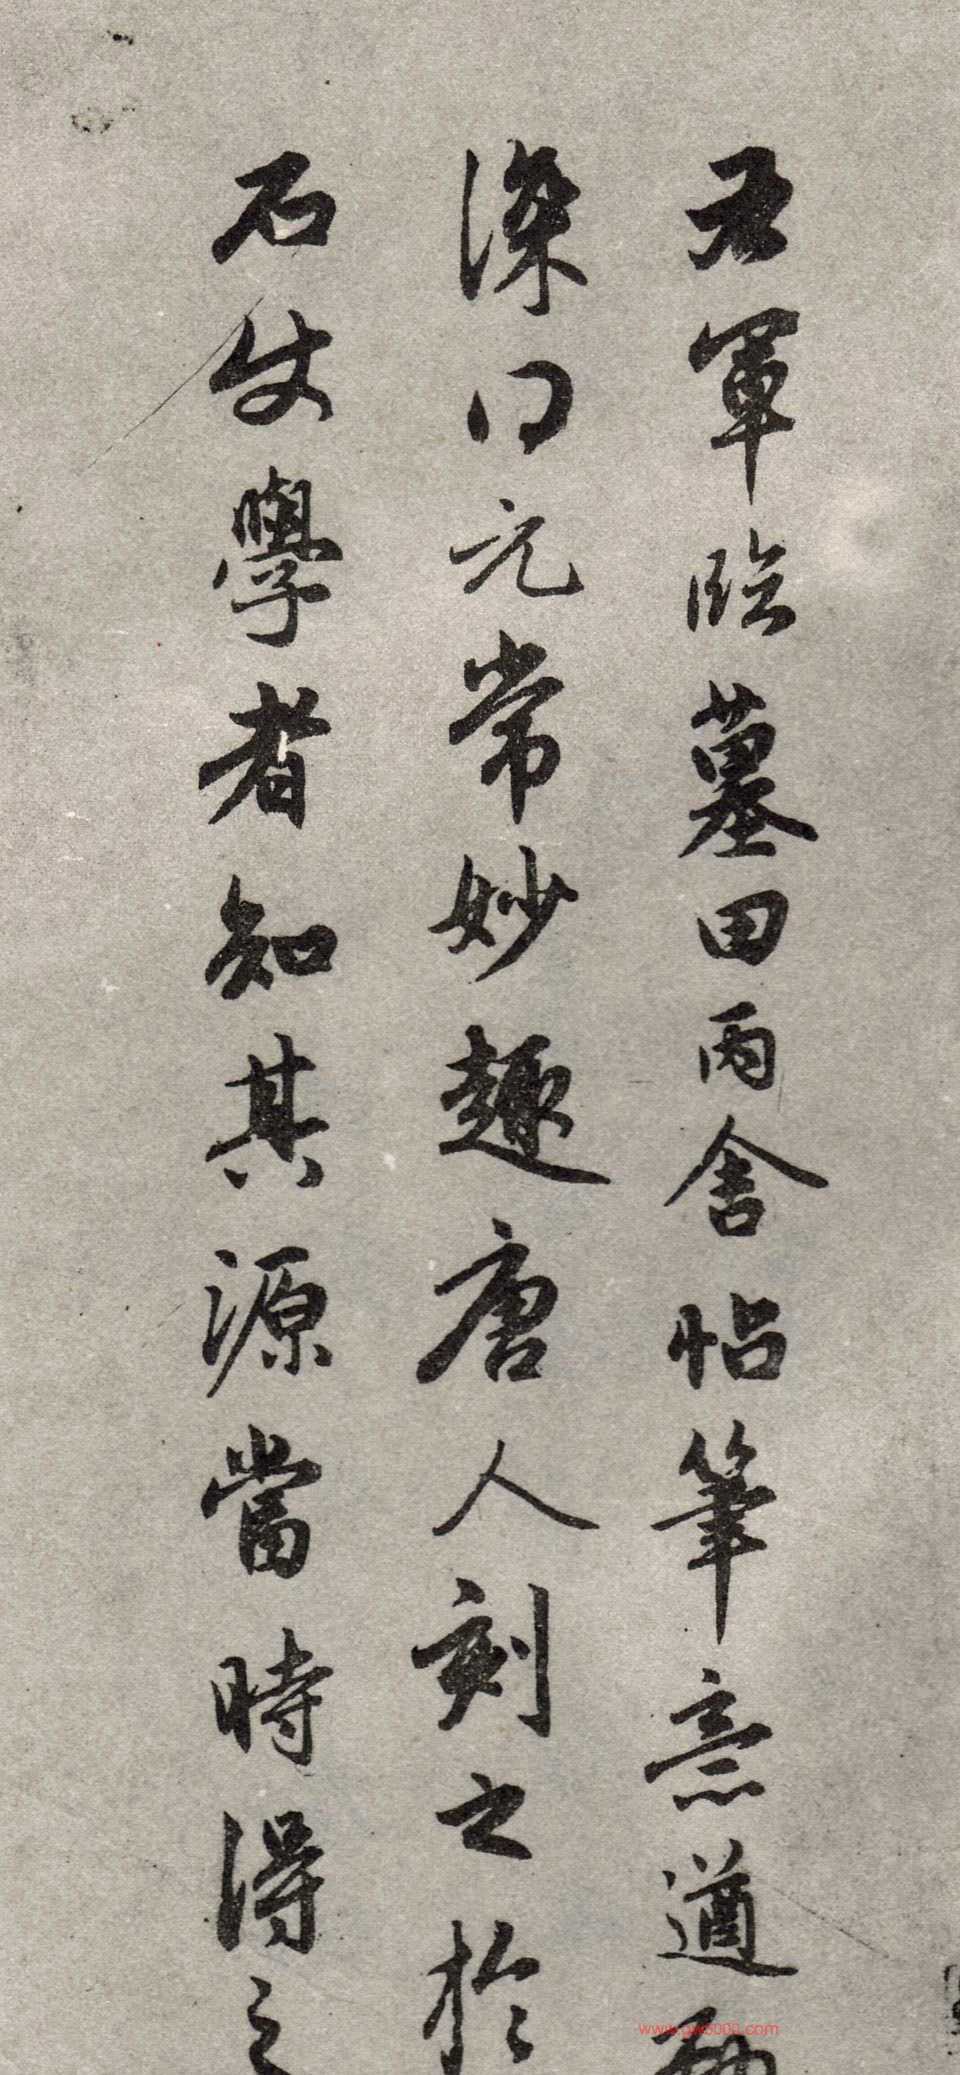 右軍臨墓田丙舍帖筆意遒
深得元常妙趣唐人刻之於
石使學者知其源當時得之
www.gw5000.com